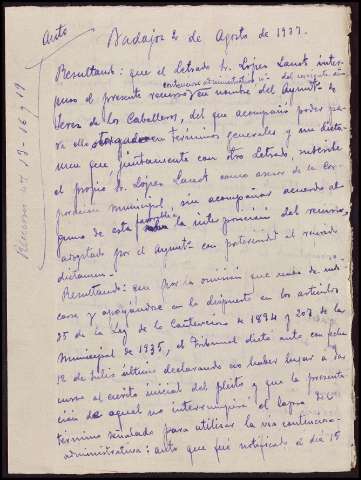 Auto
Badajoz 2 de Agosto de 1937.
Resultando: que el letrado Sr. López Sauct inter-
contencioso administrativo nº del corriente año
puso el presente recurso en nombre del Aymtº de
Jerez de los Caballeros, del que acompañó poder pa-
ra ello otorgado en términos generales y un dicta-
men que juntamente con otro Letrado, suscribe
el propio Sr. López Sauct como asesor de la Cor-
poración Municipal, sin acompañar acuerdo al-
guno de esta favorable a la interposición del recurso,
adoptado por el Aymtº con posterioridad al referido
dictamen.
Resultando: que por la omisión que acaba de indi-
carse y apoyándose en lo dispuesto en los artículos
35 de la Ley de lo Contencioso de 1894 y 203 de la
Municipal de 1935, el Tribunal dictó auto con fecha
12 de Julio último declarando no haber lugar a dar
curso al escrito inicial del pleito y que la presenta-
ción de aquel no interrumpirá el lapso del
término señalado para utilizar la vía contencioso-
administrativa: auto que fué notificado el día 15